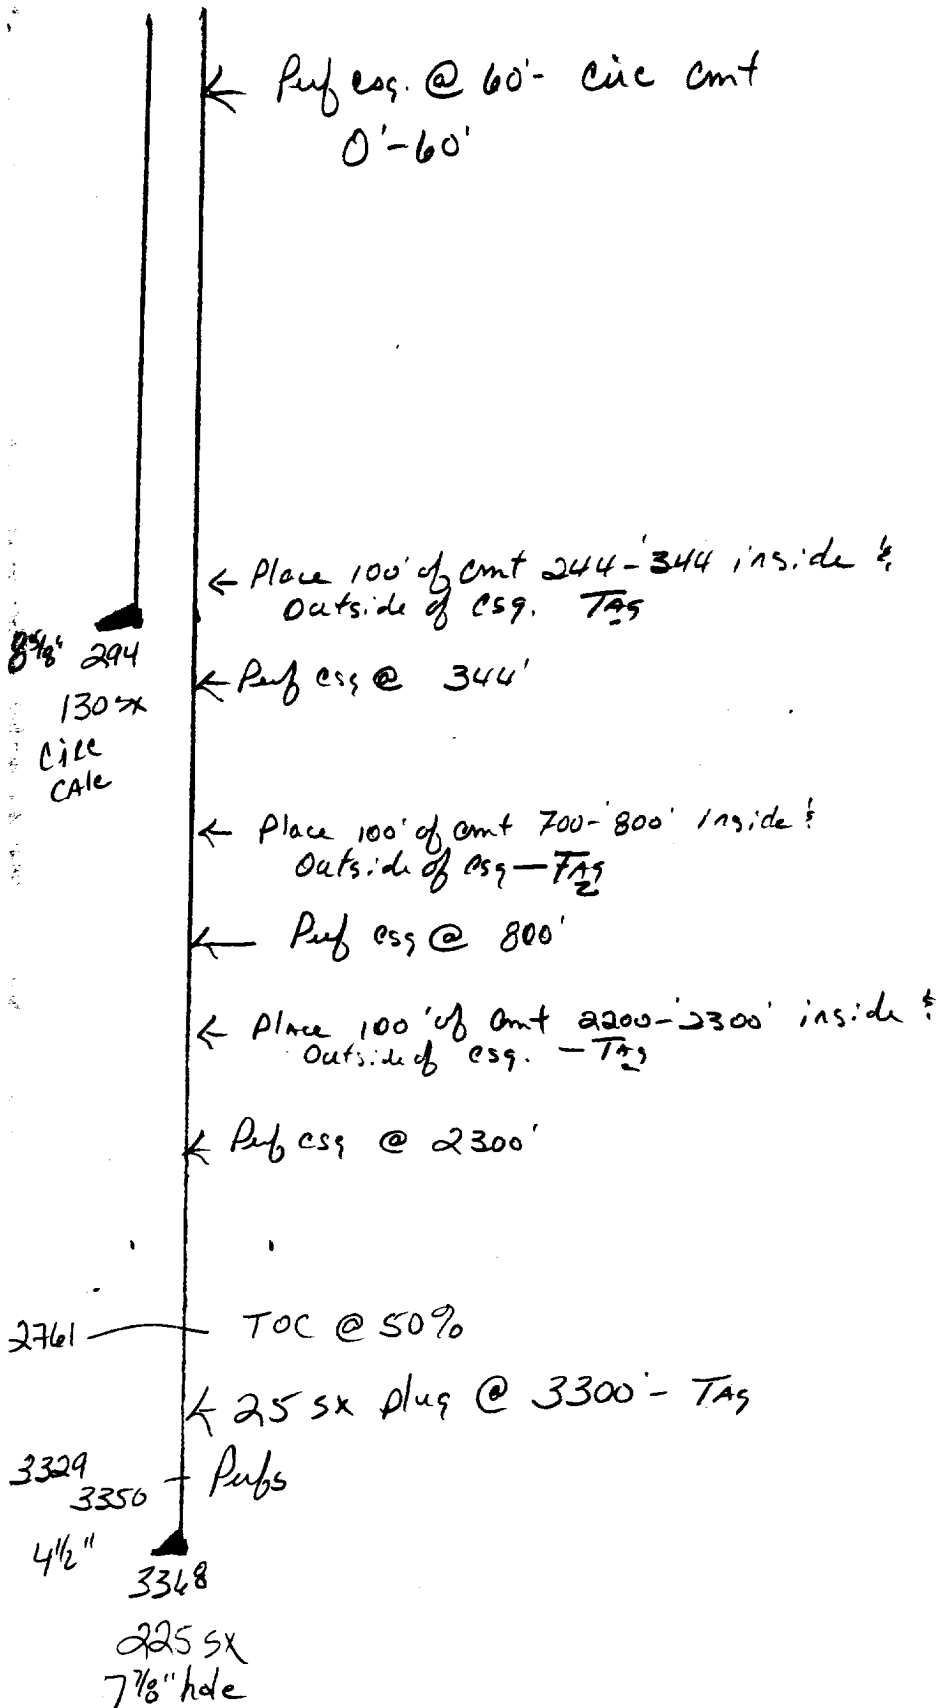 Perf csg. @ 60'- circ cmt
0'-60'
Place 100' of cmt 244-344' inside &
Outside of csg. TAg
8 5/8" 294
Perf csg @ 344'
130 sx
Circ
CAlc
Place 100' of cmt 700-800' inside &
Outside of csg — TAg
Perf csg @ 800'
Place 100' of cmt 2200-2300' inside &
Outside of csg. - TAg
Perf csg @ 2300'
2761 TOC @ 50%
25 sx plug @ 3300' - TAg
3329
3350 Perfs
4 1/2"
3368
225 sx
7 7/8" hole